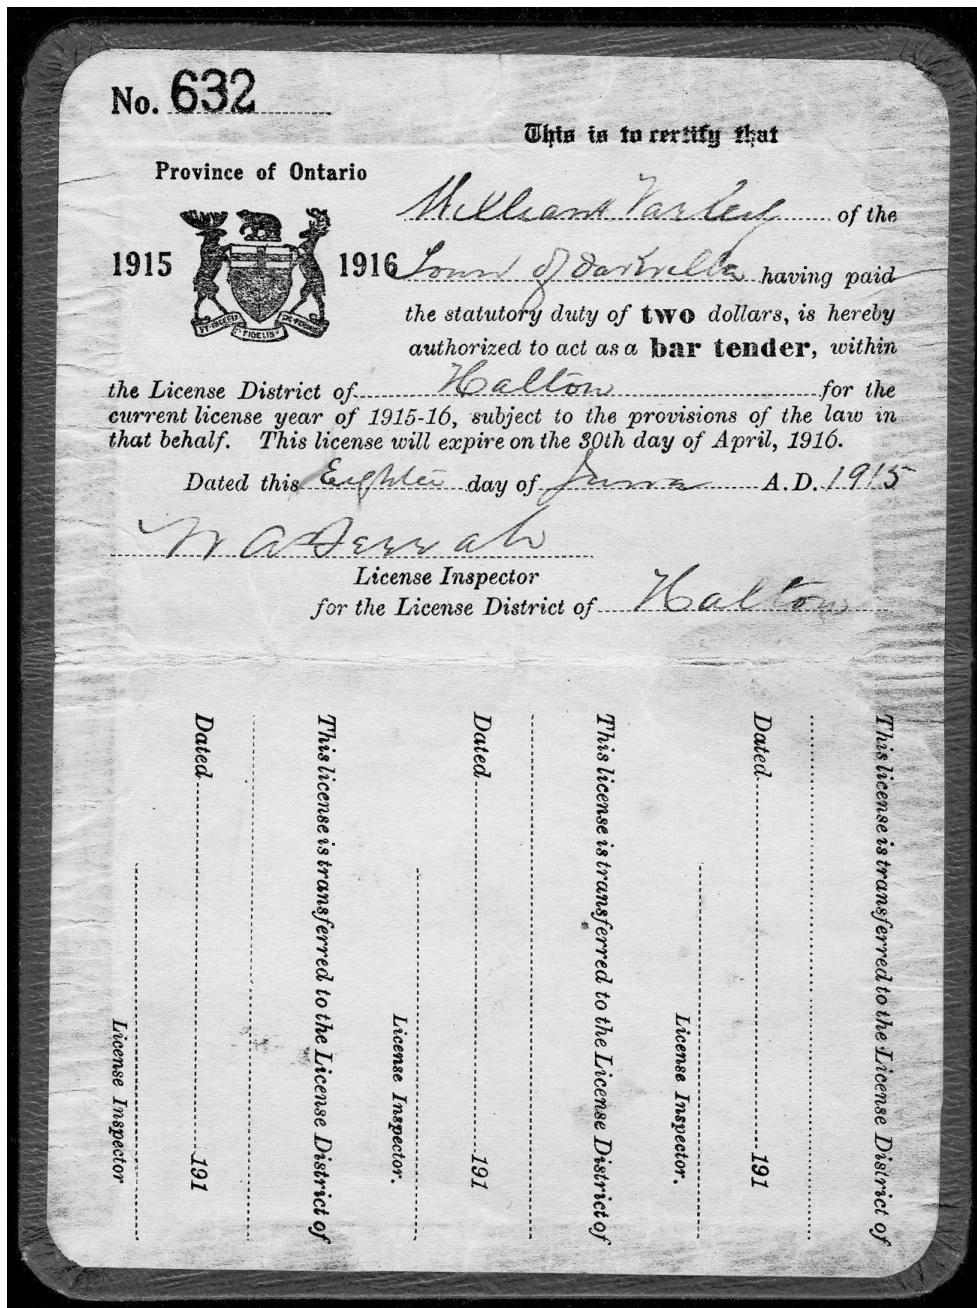 No. 632
This is to certify that
Province of Ontario
1915 1916
William Varley of the
Town of Oakville having paid
the statutory duty of two dollars, is hereby
authorized to act as a bar tender, within
the License District of Halton for the
current license year of 1915-16, subject to the provisions of the law in
that behalf. This license will expire on the 30th day of April, 1916.
Dated this Eighth day of June A.D. 1915
W A
License Inspector
for the License District of Halton
This license is transferred to the License District of
Dated 191
License Inspector.
This license is transferred to the License District of
Dated 191
License Inspector.
This license is transferred to the License District of
Dated 191
License Inspector